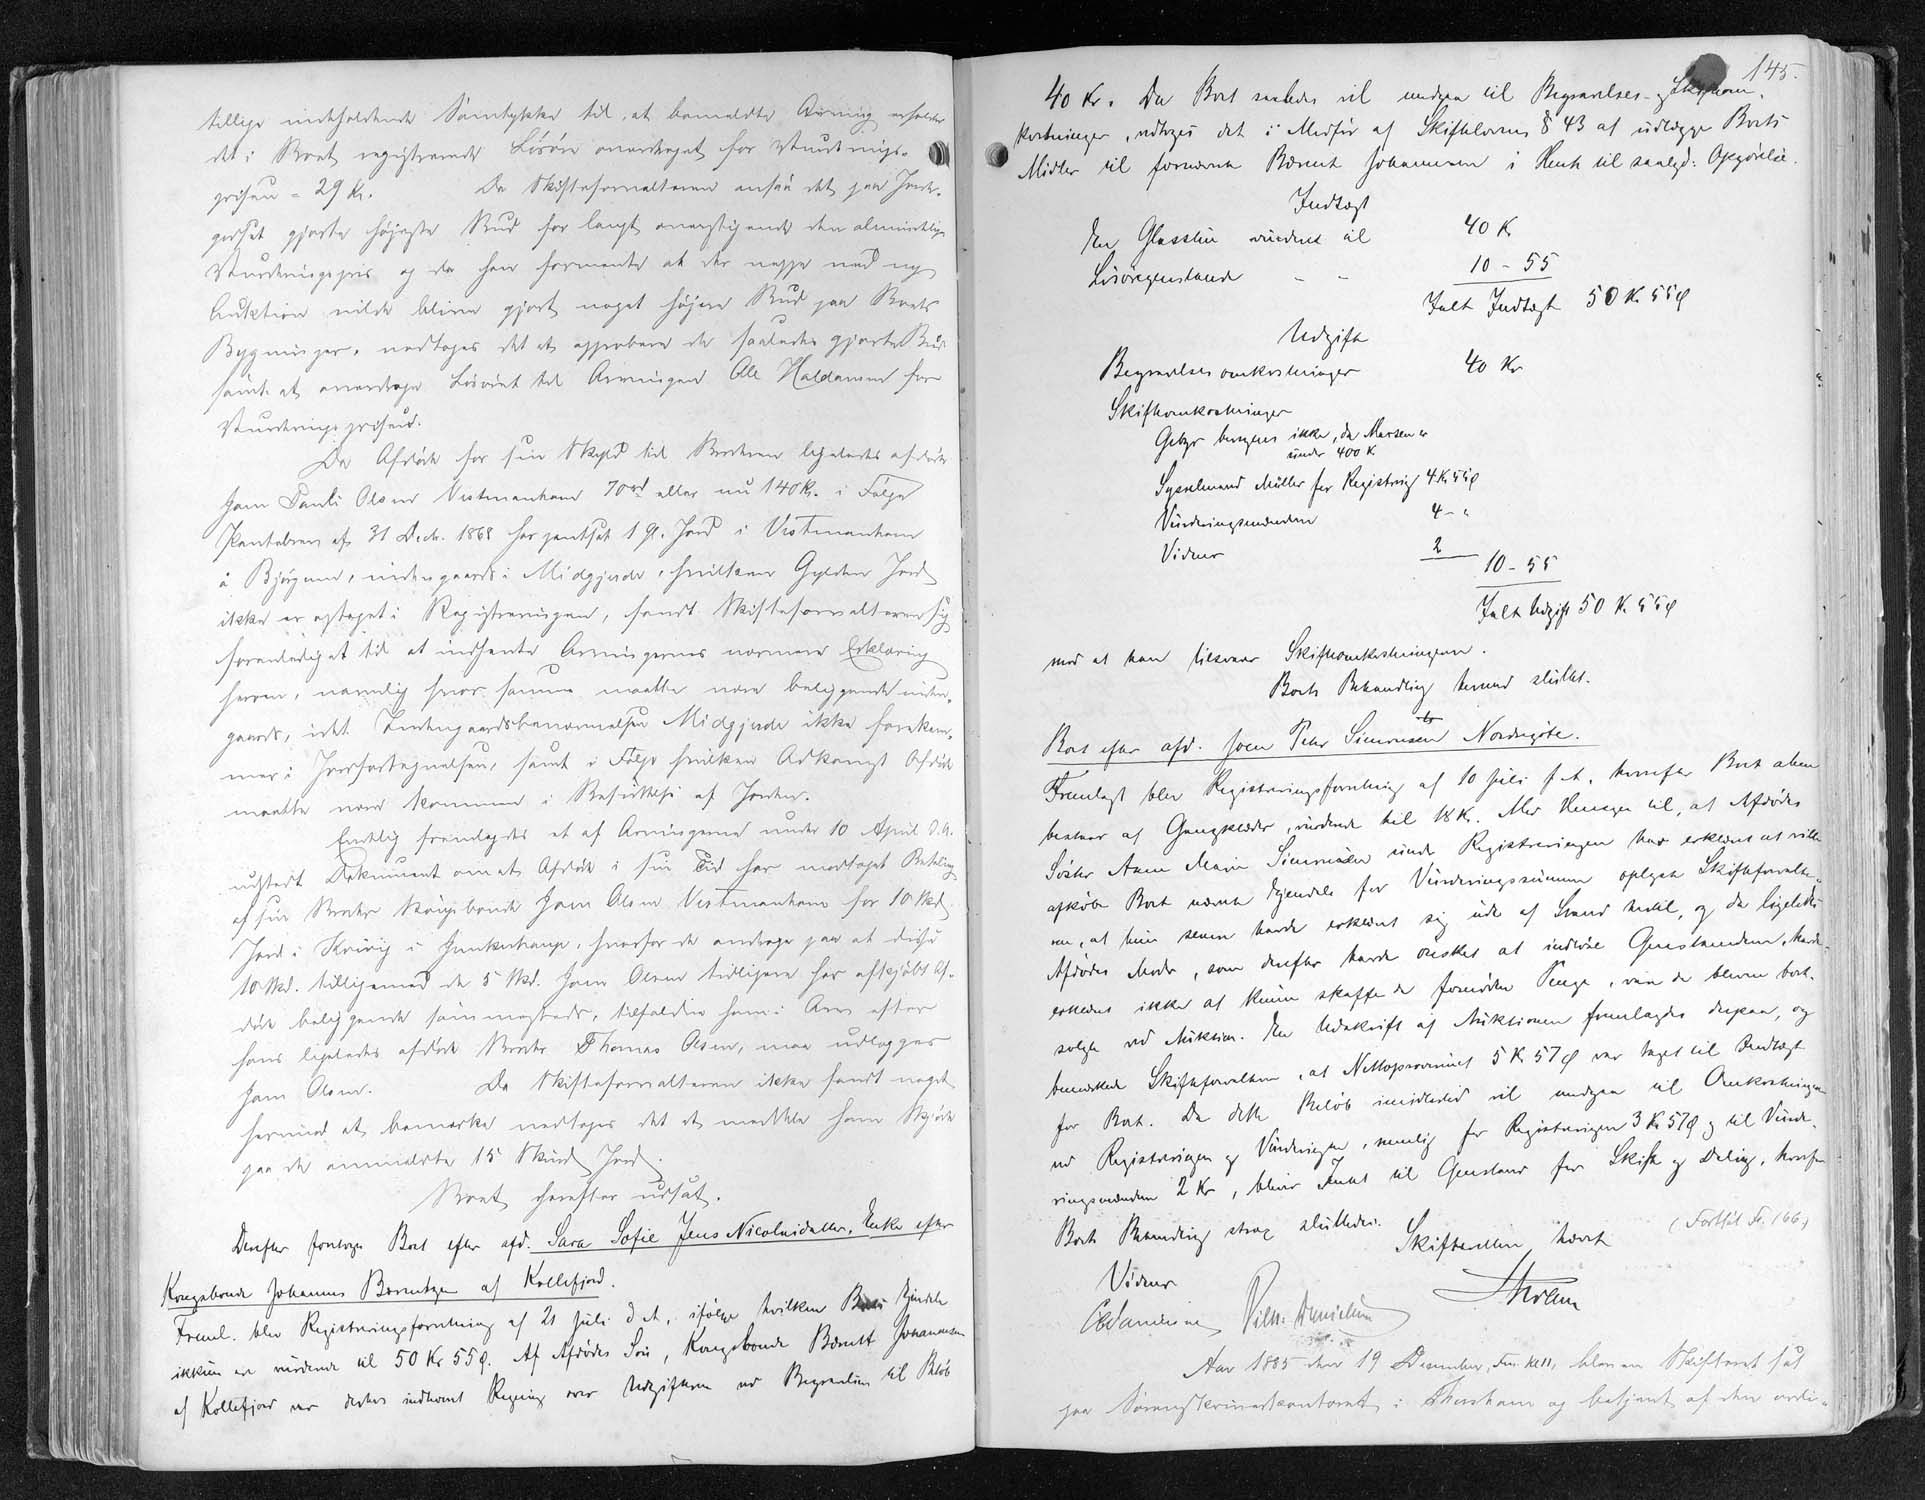 tillige indeholdende Samtykke til, at bemeldte Arving erholder
det i Boet registrerede Lösöre overdraget for Vurderings-
prisen = 29 Kr. Da Skifteforvalteren ansaa det paa Jorde-
godset gjorte højeste Bud for langt overstigende den almindelige
Vurderingspris og da han formente at der neppe ved ny
Auktion vilde blive gjort noget højere Bud paa Boets
Bygninger, vedtoges det at approbere de saaledes gjorte Bud
samt at overdrage Lösöret til Arvingen Ole Haldansen for
Vurderingsprisen.
Da Afdöde for sin Skyld til Broderen ligeledes afdöde
Joen Pauli Olsen Vestmanhavn 70 rd eller nu 140 Kr. i Følge
Pantebrev af 31 Decb. 1868 har pantsat 1 Gl. Jord i Vestmanhavn
á Bjørgum, indengaards i Midgjerde, hvilken Gylden Jord
ikke er optaget i Registreringen, fandt Skifteforvalteren sig
foranlediget til at indhente Arvingernes nærmere Erklæring
herom, navnlig hvor samme maatte være beliggende inden-
gaards, idet Indengaardsbenævnelsen Midgjerde ikke forekom-
mer i Jordfortegnelsen, samt i Følge hvilken Adkomst Afdöde
maatte være kommen i Besiddelse af Jorden.
Endelig fremlagdes et af Arvingerne under 10 April d. A.
udstedt Dokument om at Afdöde i sin Tid har modtaget Betaling
af sin Broder Kongsbonde Joen Olsen Vestmanhavn for 10 Skd.
Jord i Kvivig i Junkerhauge, hvorfor de androge paa at disse
10 Skd. tilligemed de 5 Skd. Joen Olsen tidligere har afkjöbt Af-
döde beliggende sammesteds, tilfaldne ham i Arv efter
hans ligeledes afdöde Broder Thomas Olsen, maa udlægges
Joen Olsen. Da Skifteforvalteren ikke fandt noget
hermed at bemærke vedtoges det at meddele ham Skjöde
paa de anmeldte 15 Skind Jord.
Boet derefter udsat.
Derefter foretoges Boet efter afd. Sara Sofie Jens Nicolaidatter, Enke efter
Kongsbonde Johannes Berentsen af Kollefjord.
Freml. blev Registreringsforretning af 21 Juli d. A., ifölge hvilken Boets Ejendele
ikkun er vurderede til 50 Kr 55 Ø. Af Afdödes Sön, Kongsbonde Berentt Johannesen
af Kollefjord var derhos indleveret Regning over Udgifterne ved Begravelsen til Beløb
145.
40 Kr. Da Boet saaledes vil medgaa til Begravelses- og Skifteom-
kostninger, vedtoges det i Medför af Skiftelovens § 43 at udlægge Boets
Midler til fornævnte Berent Johannesen i Henh. til saalyd: Opgörelse.
Indtægt
En Glasstue vurderet til 40 K
Lösöregenstande - - 10 - 55
Ialt Indtægt 50 K. 55 Ø
Udgift
Begravelsesomkostninger 40 Kr
Skifteomkostninger
Gebyr beregnes ikke, da Massen er
under 400 K.
Sysselmand Müller for Registrering 4 K 55 Ø
Vurderingsmændene 4 - "
Vidner 2
10 - 55
Ialt Udgift 50 K. 55 Ø
mod at han tilsvarer Skifteomkostningerne.
Boets Behandling hermed sluttet.
Boet efter afd. Joen Peter Simonsen Nordregöte.
Fremlagt blev Registreringsforretning af 10 Juli f. A., hvorefter Boet alene
bestaar af Gangklæder, vurderede til 18 K. Med Hensyn til, at Afdödes
Söster Anna Marie Simonsen under Registreringen har erklæret at ville
afköbe Boet nævnte Ejendele for Vurderingssummen oplyste Skifteforvalte-
ren, at hun senere havde erklæret sig ude af Stand hertil, og da ligeledes
Afdödes Moder, som derefter havde önsket at indlöse Genstandene, havde
erklæret ikke at kunne skaffe de fornödne Penge, vare de blevne bort-
solgte ved Auktion. En Udskrift af Auktionen fremlagdes derpaa, og
bemærkede Skifteforvalteren, at Nettoprovenuet 5 K 57 Ø var taget til Indtægt
for Boet. Da dette Beløb imidlertid vil medgaa til Omkostningerne
ved Registreringen og Vurderingen, nemlig for Registreringen 3 Kr 57 Ø og til Vurde-
ringsmændene 2 Kr, bliver Intet til Genstand for Skifte og Deling, hvorfor
Boets Behandling strax sluttedes.
(Fortsat Fo. 166)
Skifteretten hævet
Vidner
Vilh. Danielsen
Aar 1885 den 19 December, Fm. Kl 11, blev en Skifteret sat
paa Sorenskriverkontoret i Thorshavn og betjent af den ordi-